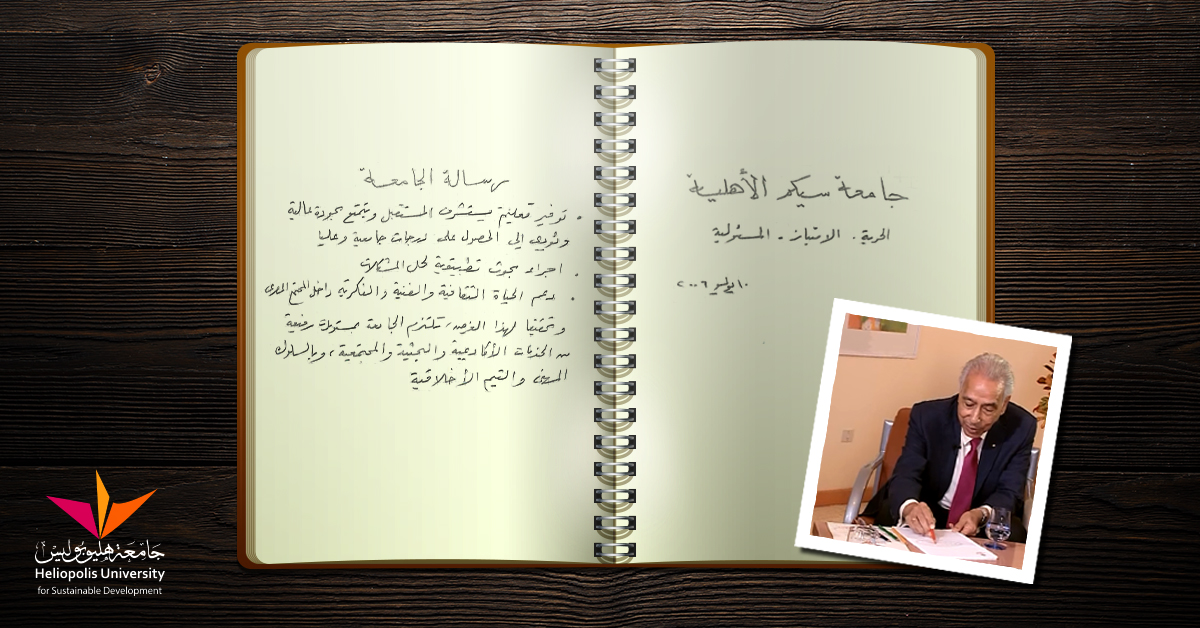 جامعة سيكم الأهلية
الحرية . الامتياز - المسئولية
١٠ يوليو ٢٠٠٦
رسالة الجامعة
• توفير تعليم يستشرف المستقبل ويتمتع بجودة عالية
ويؤدى إلى الحصول على درجات جامعية وعليا
• اجراء بحوث تطبيقية لحل المشكلات
• دعم الحياة الثقافية والفنية والفكرية داخل المجتمع المصرى
وتحقيقا لهذا الغرض، تلتزم الجامعة بمستويات رفيعة
من الخدمات الأكاديمية والبحثية والمجتمعية ، وبالسلوك
المهنى والقيم الأخلاقية
جامعة هليوبوليس
Heliopolis University
for Sustainable Development